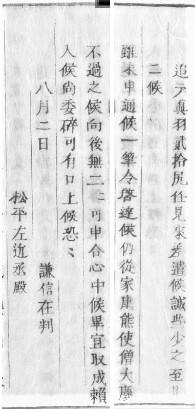 追而真羽貳拾尻任見来差遣候誠些少之至ニ候
雖未申通候一筆令啓達候仍従家康能使僧大慶
不過之候向後無二ニ可申合心中候畢宜取成頼
入候尚委碎可有口上候恐々
八月二日
謙信在判
松平左近丞殿